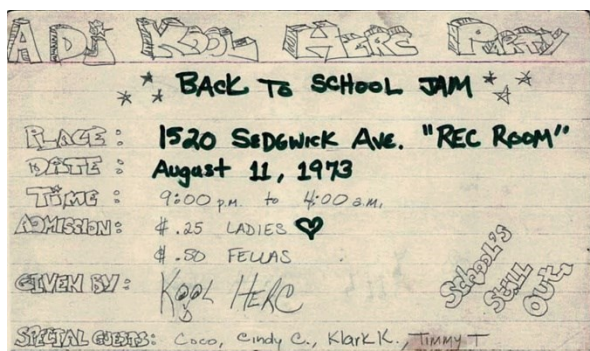 A DJ KOOL HERC PARTY
BACK TO SCHOOL JAM
PLACE: 1520 SEDGWICK AVE. "REC ROOM"
DATE: August 11, 1973
TIME: 9:00 p.m. to 4:00 a.m.
ADMISSION: $.25 LADIES
$.50 FELLAS
GIVEN BY: KOOL HERC
SCHOOL'S
STILL
OUT.
SPECIAL GUESTS: Coco, Cindy C., Klark K., Timmy T